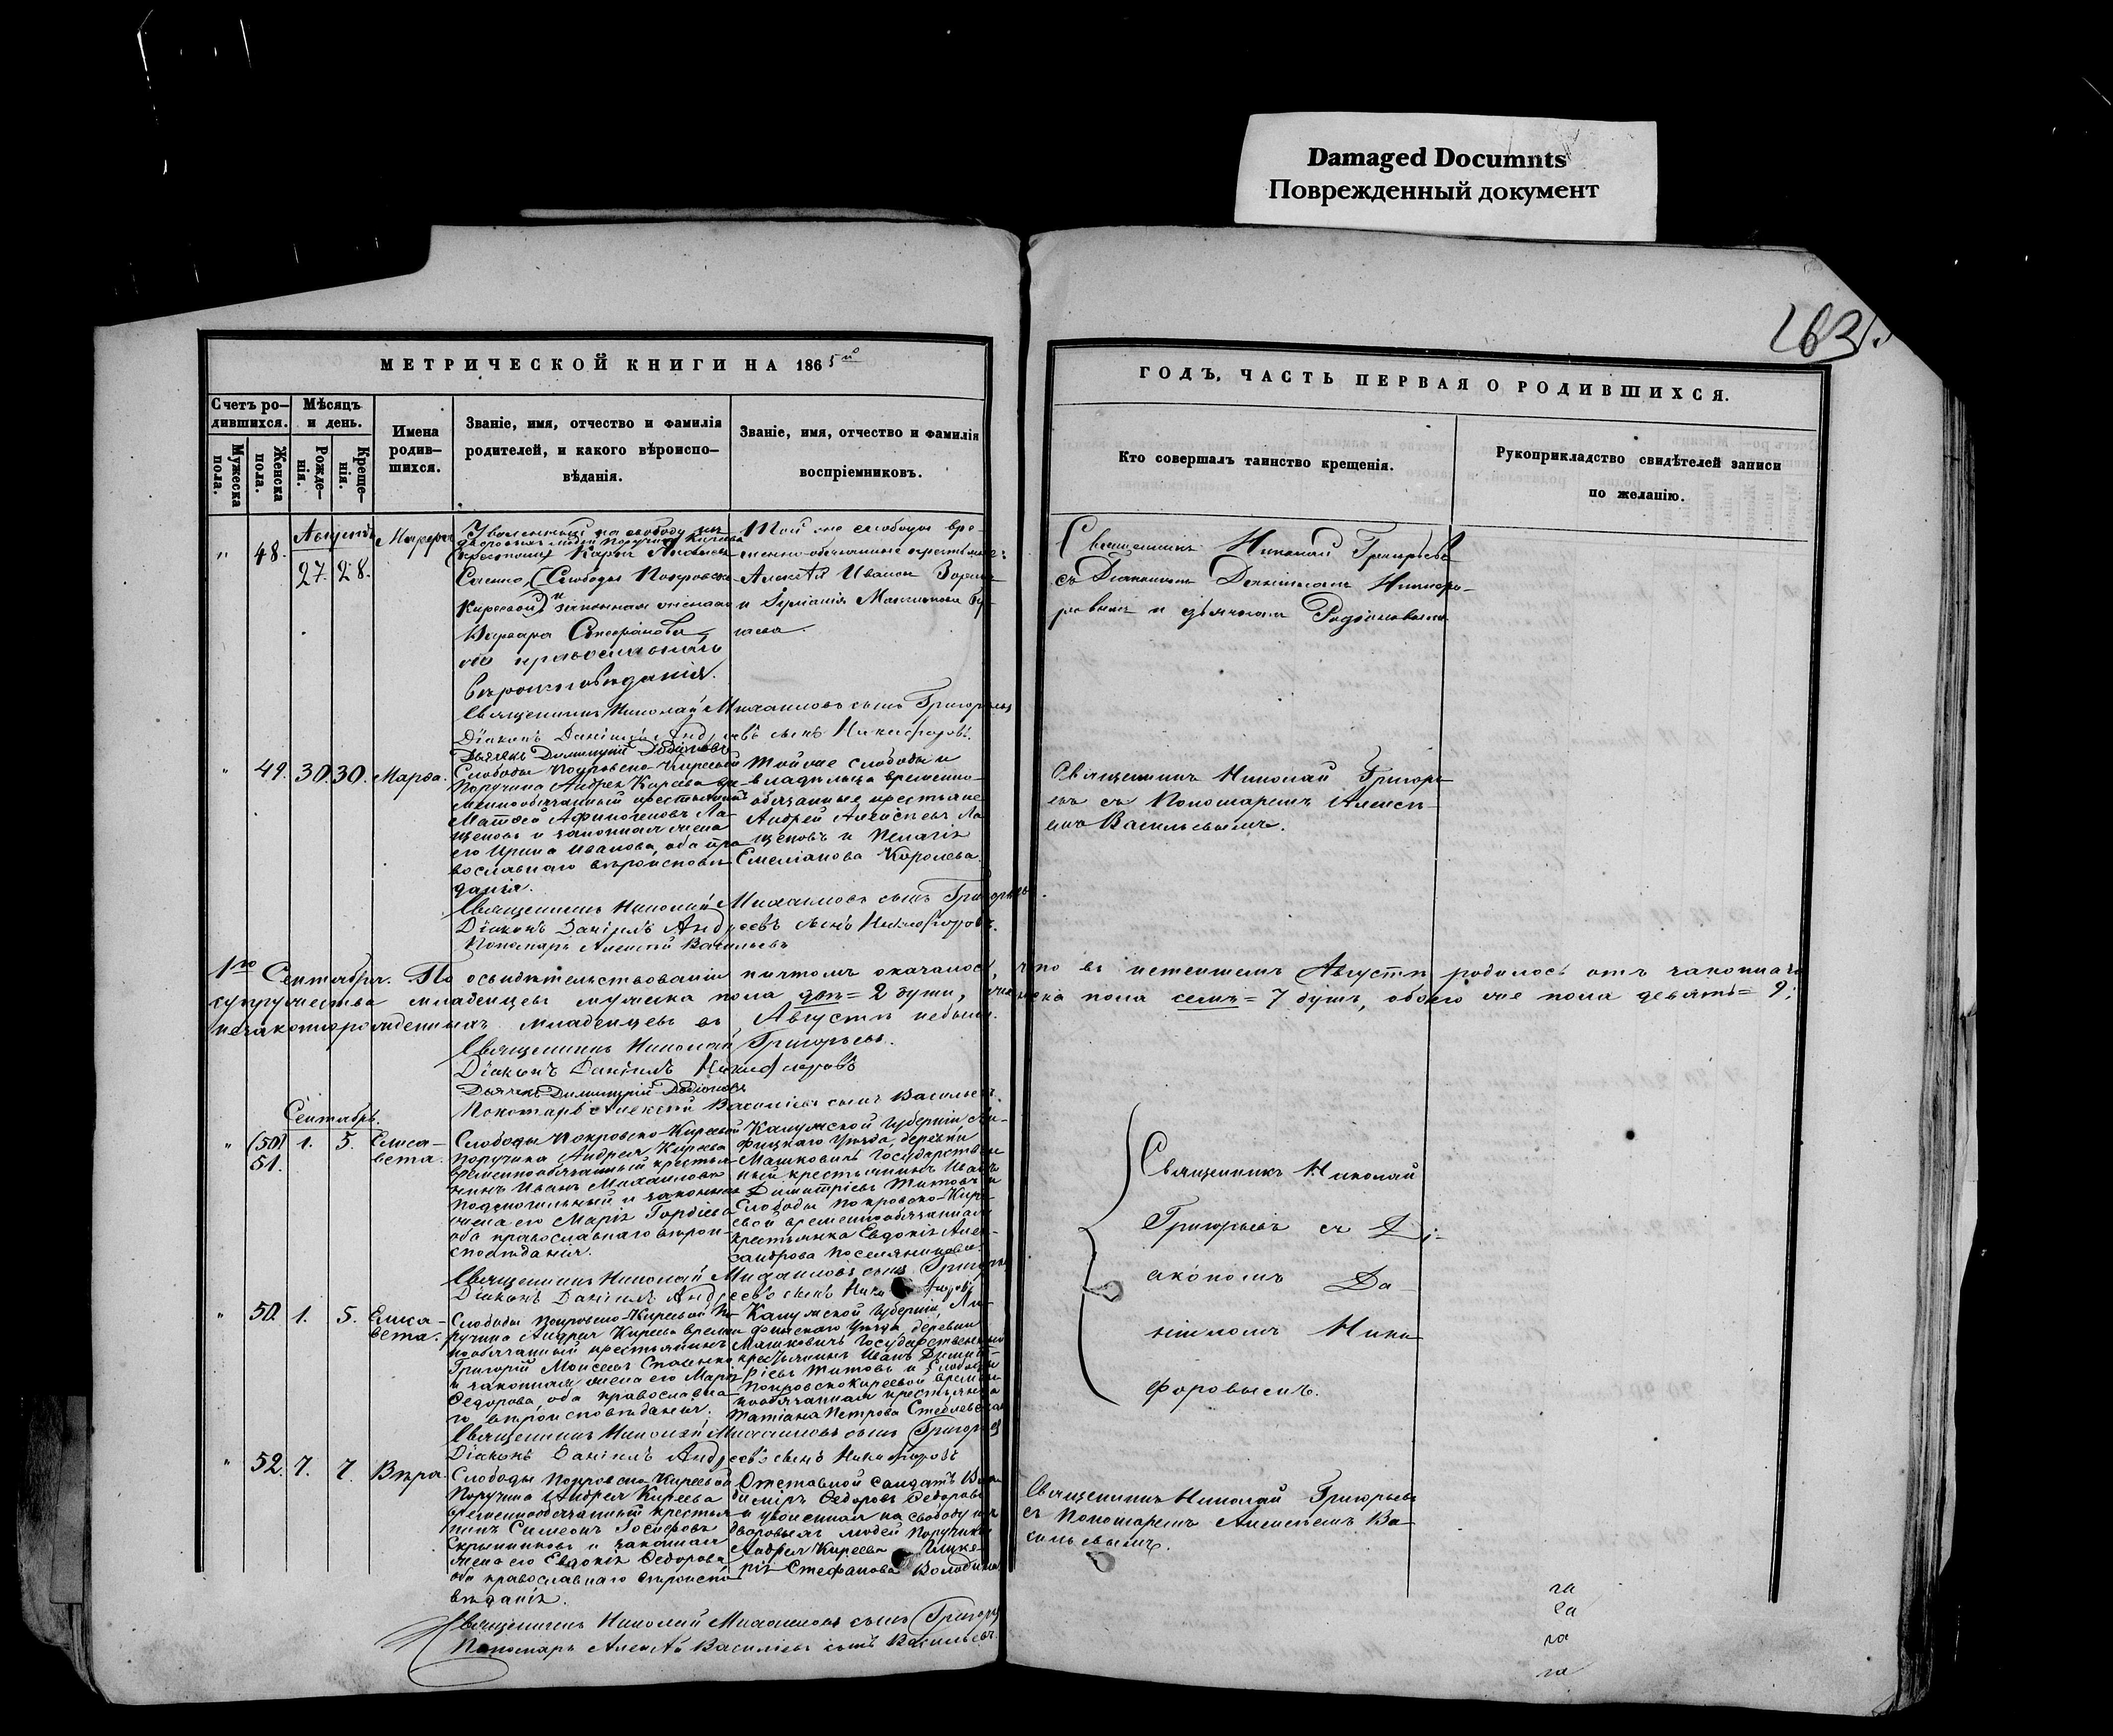 Damaged Documnts
Поврежденный документ
МЕТРИЧЕСКОЙ КНИГИ НА 1865й
ГОДЪ, ЧАСТЬ ПЕРВАЯ О РОДИВШИХСЯ.
Счетъ ро-
дившихся.
Мужеска пола.
Женска пола.
Мѣсяцъ
и день.
Рожде-
нія.
Креще-
нія.
Имена
родив-
шихся.
Званіе, имя, отчество и фамилія
родителей, и какого вѣроиспо-
вѣданія.
Званіе, имя, отчество и фамилія
воспріемниковъ.
Кто совершалъ таинство крещенія.
Рукоприкладство свидѣтелей записи
по желанію.
Августъ
" 48. 27. 28.
Уволенный на свободу изъ
дворовыхъ людей Поручика Кирѣева
Слободы Покровско-
Кирѣевой и законная жена его
Варвара
оба православнаго
вѣроисповѣданія.
Той же слободы вре-
менно-обязанные крестьяне:
Алексѣй Ивановъ
Священникъ Николай Григорьевъ
съ Діакономъ Даніиломъ Никифо-
ровымъ и дьячкомъ Родіоновымъ
Священникъ Николай Михаиловъ сынъ Григорьевъ
Діаконъ Даніилъ Андреевъ сынъ Никифоровъ
Дьячекъ Димитрій Родіоновъ
" 49. 30. 30. Марѳа.
Слободы Покровско-Кирѣевой
Поручика Андрея Кирѣева вре-
меннообязанный крестьянинъ
Матѳей Афиногеновъ Ла-
щеновъ и законная жена
его Ирина Иванова, оба пра-
вославнаго вѣроисповѣ-
данія.
Той же слободы и
владѣльца временно-
обязанные крестьяне
Андрей Алексѣевъ Ла-
щеновъ и Пелагія
Емеліанова Королева.
Священникъ Николай Григорь-
евъ съ Пономаремъ Алексѣ-
емъ Васильевымъ.
Священникъ Николай Михаиловъ сынъ Григорьевъ
Діаконъ Даніилъ Андреевъ сынъ Никифоровъ.
Пономарь Алексѣй Васильевъ
1го Сентября. По освидѣтельствованіи причтомъ оказалось, что въ истекшемъ Августѣ родилось отъ законнаго
супружества младенцевъ мужеска пола двѣ = 2 души, женска пола семь = 7 душъ, обоего же пола девять = 9;
незаконнорожденныхъ младенцевъ въ Августѣ небыло.
Священникъ Николай Григорьевъ.
Діаконъ Даніилъ Никифоровъ
Дьячекъ Димитрій Родіоновъ
Пономарь Алексѣй Василіевъ сынъ Васильевъ.
Сентябрь.
" (50) 51. 1. 5. Елиса-
вета.
Слободы Покровско-Кирѣевой
Поручика Андрея Кирѣева
временнообязанный крестья-
нинъ Иванъ Михаиловъ
и законная
жена его Марія Гордіева
оба православнаго вѣрои-
споведанія.
Калужской Губерніи, Ли-
финскаго Уѣзда, деревни
Машковичъ Государствен-
ный крестьянинъ Иванъ
Димитріевъ Титовъ и
Слободы Покровско-Кирѣ-
евой временнообязанная
крестьянка Евдокія Алек-
сандрова Поселянникова.
Священникъ Николай
Григорьевъ съ Ді-
акономъ Да-
ніиломъ Ники-
форовымъ.
Священникъ Николай Михаиловъ сынъ Григорьевъ
Діаконъ Даніилъ Андреевъ сынъ Никифоровъ
" 50. 1. 5. Елиса-
вета.
Слободы Покровско-Кирѣевой По-
ручика Андрея Кирѣева времен-
нообязанный крестьянинъ
Григорій Моисеевъ
и законная жена его Марія
Ѳедорова, оба православна-
го вѣроисповѣданія.
Калужской Губерніи, Ли-
финскаго Уѣзда деревни
Машковичъ Государственный
крестьянинъ Иванъ Димит-
ріевъ Титовъ и Слободы
Покровскокирѣевой времен-
нообязанная крестьянка
Татіана Петрова
Священникъ Николай Михаиловъ сынъ Григорьевъ
Діаконъ Даніилъ Андреевъ сынъ Никифоровъ
" 52. 7. 7. Вѣра.
Слободы Покровско-Кирѣевой
Поручика Андрея Кирѣева
временнообязанный крестья-
нинъ Симеонъ Іосифовъ
Скрынниковъ и законная
жена его Евдокія Ѳедорова
оба православнаго вѣроиспо-
вѣданія.
Отставной солдатъ Вла-
диміръ Ѳедоровъ Ѳедоровъ
и уволенная на свободу изъ
дворовыхъ людей Поручика
Андрея Кирѣева Глике-
рія Стефанова Володина.
Священникъ Николай Григорьевъ
съ Пономаремъ Алексѣемъ Ва-
сильевымъ.
Священникъ Николай Михаиловъ сынъ Григорьевъ
Пономарь Алексѣй Василіевъ сынъ Васильевъ.